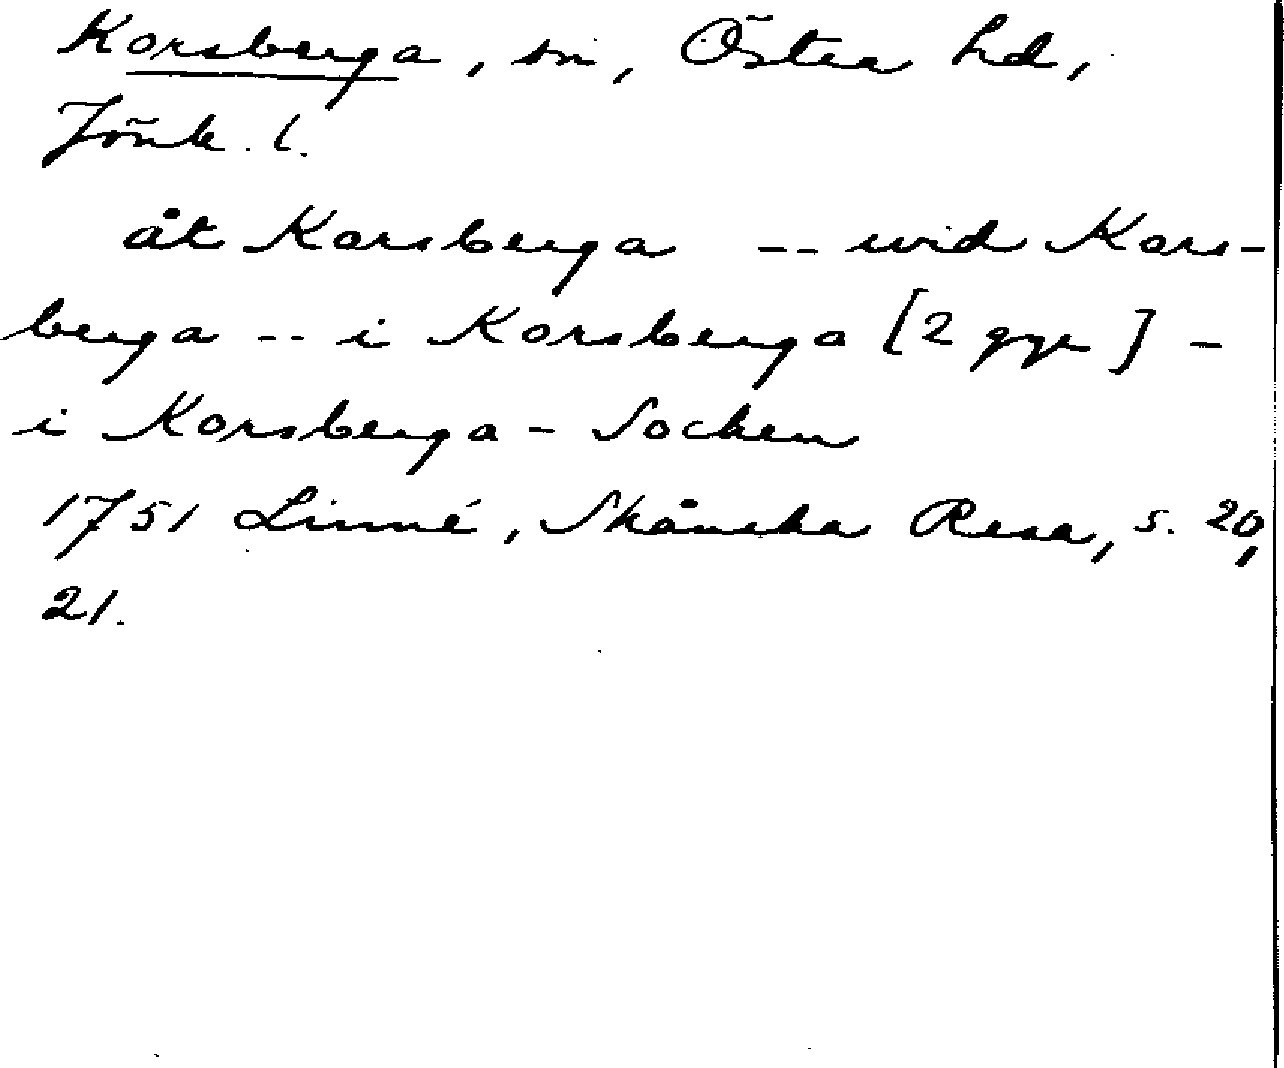 Korsberga, sn, Östra hd,
Jönk. l.
åt Korsberga -- wid Kors-
berga -- i Korsberga [2 ggr] -
i Korsberga - Socken
1751 Linné, Skånska Resa, s. 20,
21.